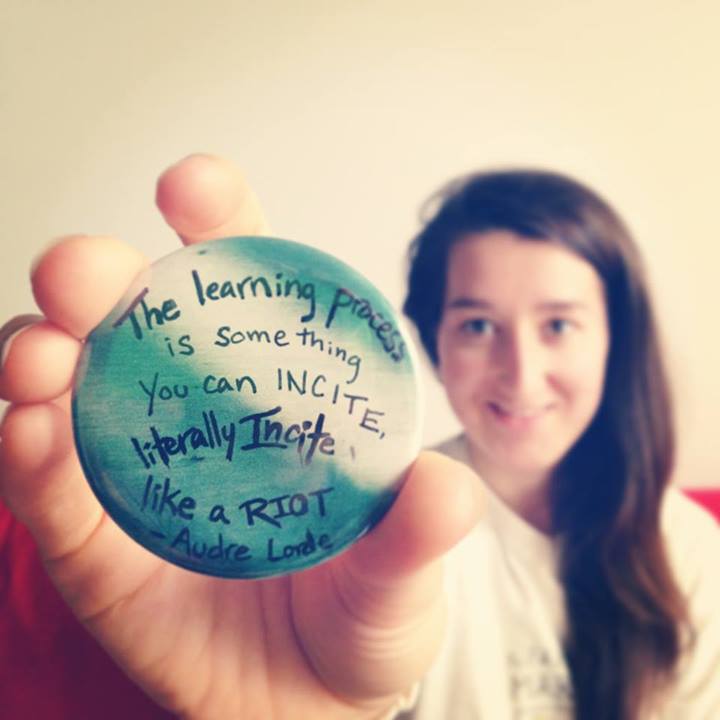 The learning process
is something
you can INCITE,
literally Incite,
like a RIOT
- Audre Lorde